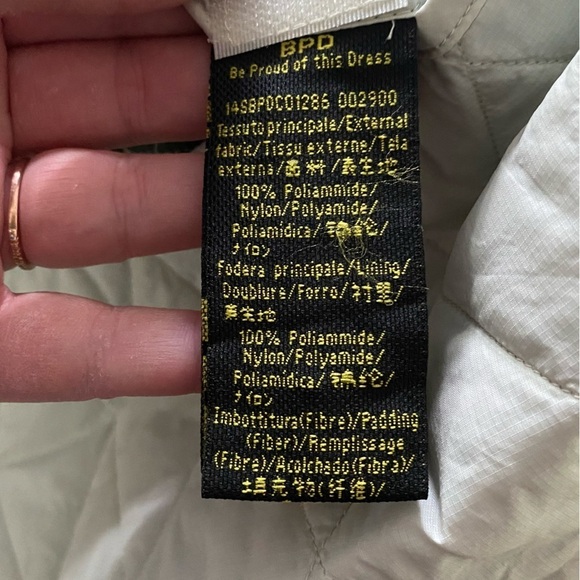 BPD
Be Proud of this Dress
14SBPDC01286 002900
Tessuto principale/External
fabric/Tissu externe/Tela
externa/面料/表生地
100% Poliammide/
Nylon/Polyamide/
Poliamidica/锦纶/
ナイロン
Fodera principale/Lining/
Doublure/Forro/衬里/
裏生地
100% Poliammide/
Nylon/Polyamide/
Poliamidica/锦纶/
ナイロン
Imbottitura(Fibre)/Padding
(Fiber)/Remplissage
(Fibre)/Acolchado(Fibra)/
填充物(纤维)/